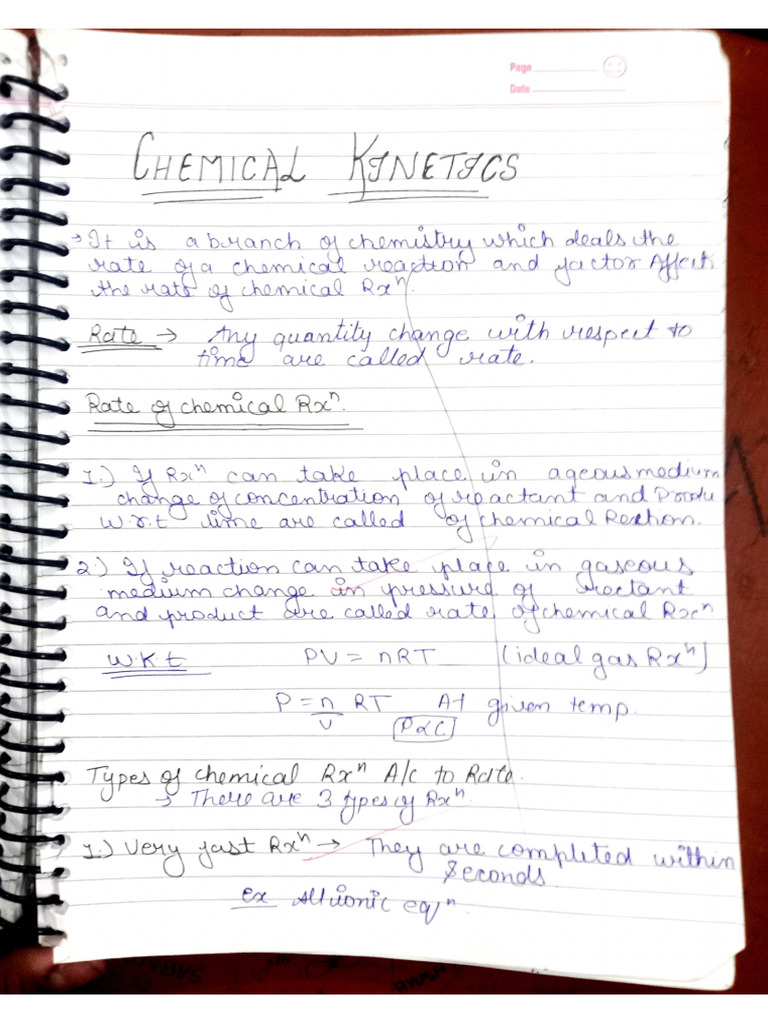 Page
Date
CHEMICAL KINETICS
→ It is a branch of chemistry which deals the
rate of a chemical reaction and factor Affect
the rate of chemical Rxⁿ
Rate → Any quantity change with respect to
time are called rate.
Rate of chemical Rxⁿ.
1.) If Rxⁿ can take place in aqeous medium
change of concentration of reactant and
w.r.t time are called of chemical
2.) If reaction can take place in gaseous
medium change in pressure of rectant
and product are called rate of chemical Rxⁿ
W.K.t PV = nRT (ideal gas Rxⁿ)
P = n/V RT At given temp.
P∝C
Types of chemical Rxⁿ A/c to Rate.
→ There are 3 types of Rxⁿ.
1.) Very fast Rxⁿ → They are completed within
Seconds
ex All ionic eqⁿ.